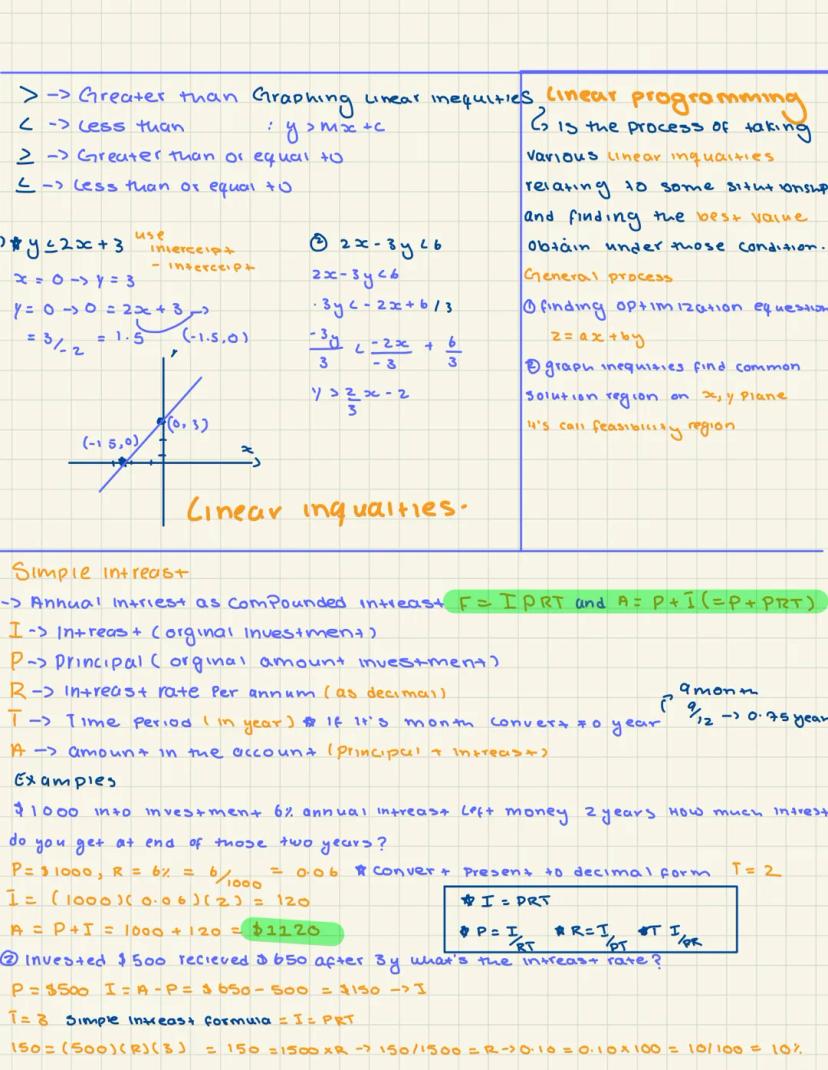 > -> Greater than Graphing Linear inequities
< -> Less than : y > mx + c
≥ -> Greater than or equal to
≤ -> Less than or equal to
* y ≤ 2x + 3 use interceipt - interceipt
x = 0 -> y = 3
y = 0 -> 0 = 2x + 3 ->
= 3/-2 = 1.5 (-1.5,0)
(0,3)
(-1.5,0)
x
② 2x - 3y < 6
2x - 3y < 6
-3y < -2x + 6 /3
-3y/3 < -2x/-3 + 6/3
y > 2/3 x - 2
Linear inqualties.
Linear programming
↳ is the process of taking
various linear inqualties
relating to some
and finding the best value
obtain under those condition.
General process
① finding optimization equestion
z = ax + by
② graph inequities find common
solution region on x, y plane
it's call feasibility region
Simple intreast
-> Annual intriest as compounded intreast F = I PRT and A = P + I (= P + PRT)
I -> Intreast (orginal investment)
P -> Principal (orginal amount investment)
R -> Intreast rate per annum (as decimal)
T -> Time period (in year) * if it's month convert to year
9 month
9/12 -> 0.75 year
A -> amount in the account (principal + intreast)
Examples
$1000 into investment 6% annual intreast left money 2 years How much intrest
do you get at end of those two years?
P = $1000, R = 6% = 6/1000 = 0.06 * convert present to decimal form T = 2
I = (1000)(0.06)(2) = 120
A = P + I = 1000 + 120 = $1120
* I = PRT
* P = I/RT * R = I/PT * T I/PR
② Invested $500 recieved $650 after 3y what's the intreast rate?
P = $500 I = A - P = $650 - 500 = $150 -> I
T = 3 Simple intreast formula = I = PRT
150 = (500)(R)(3) = 150 = 1500 x R -> 150/1500 = R -> 0.10 = 0.10 x 100 = 10/100 = 10%